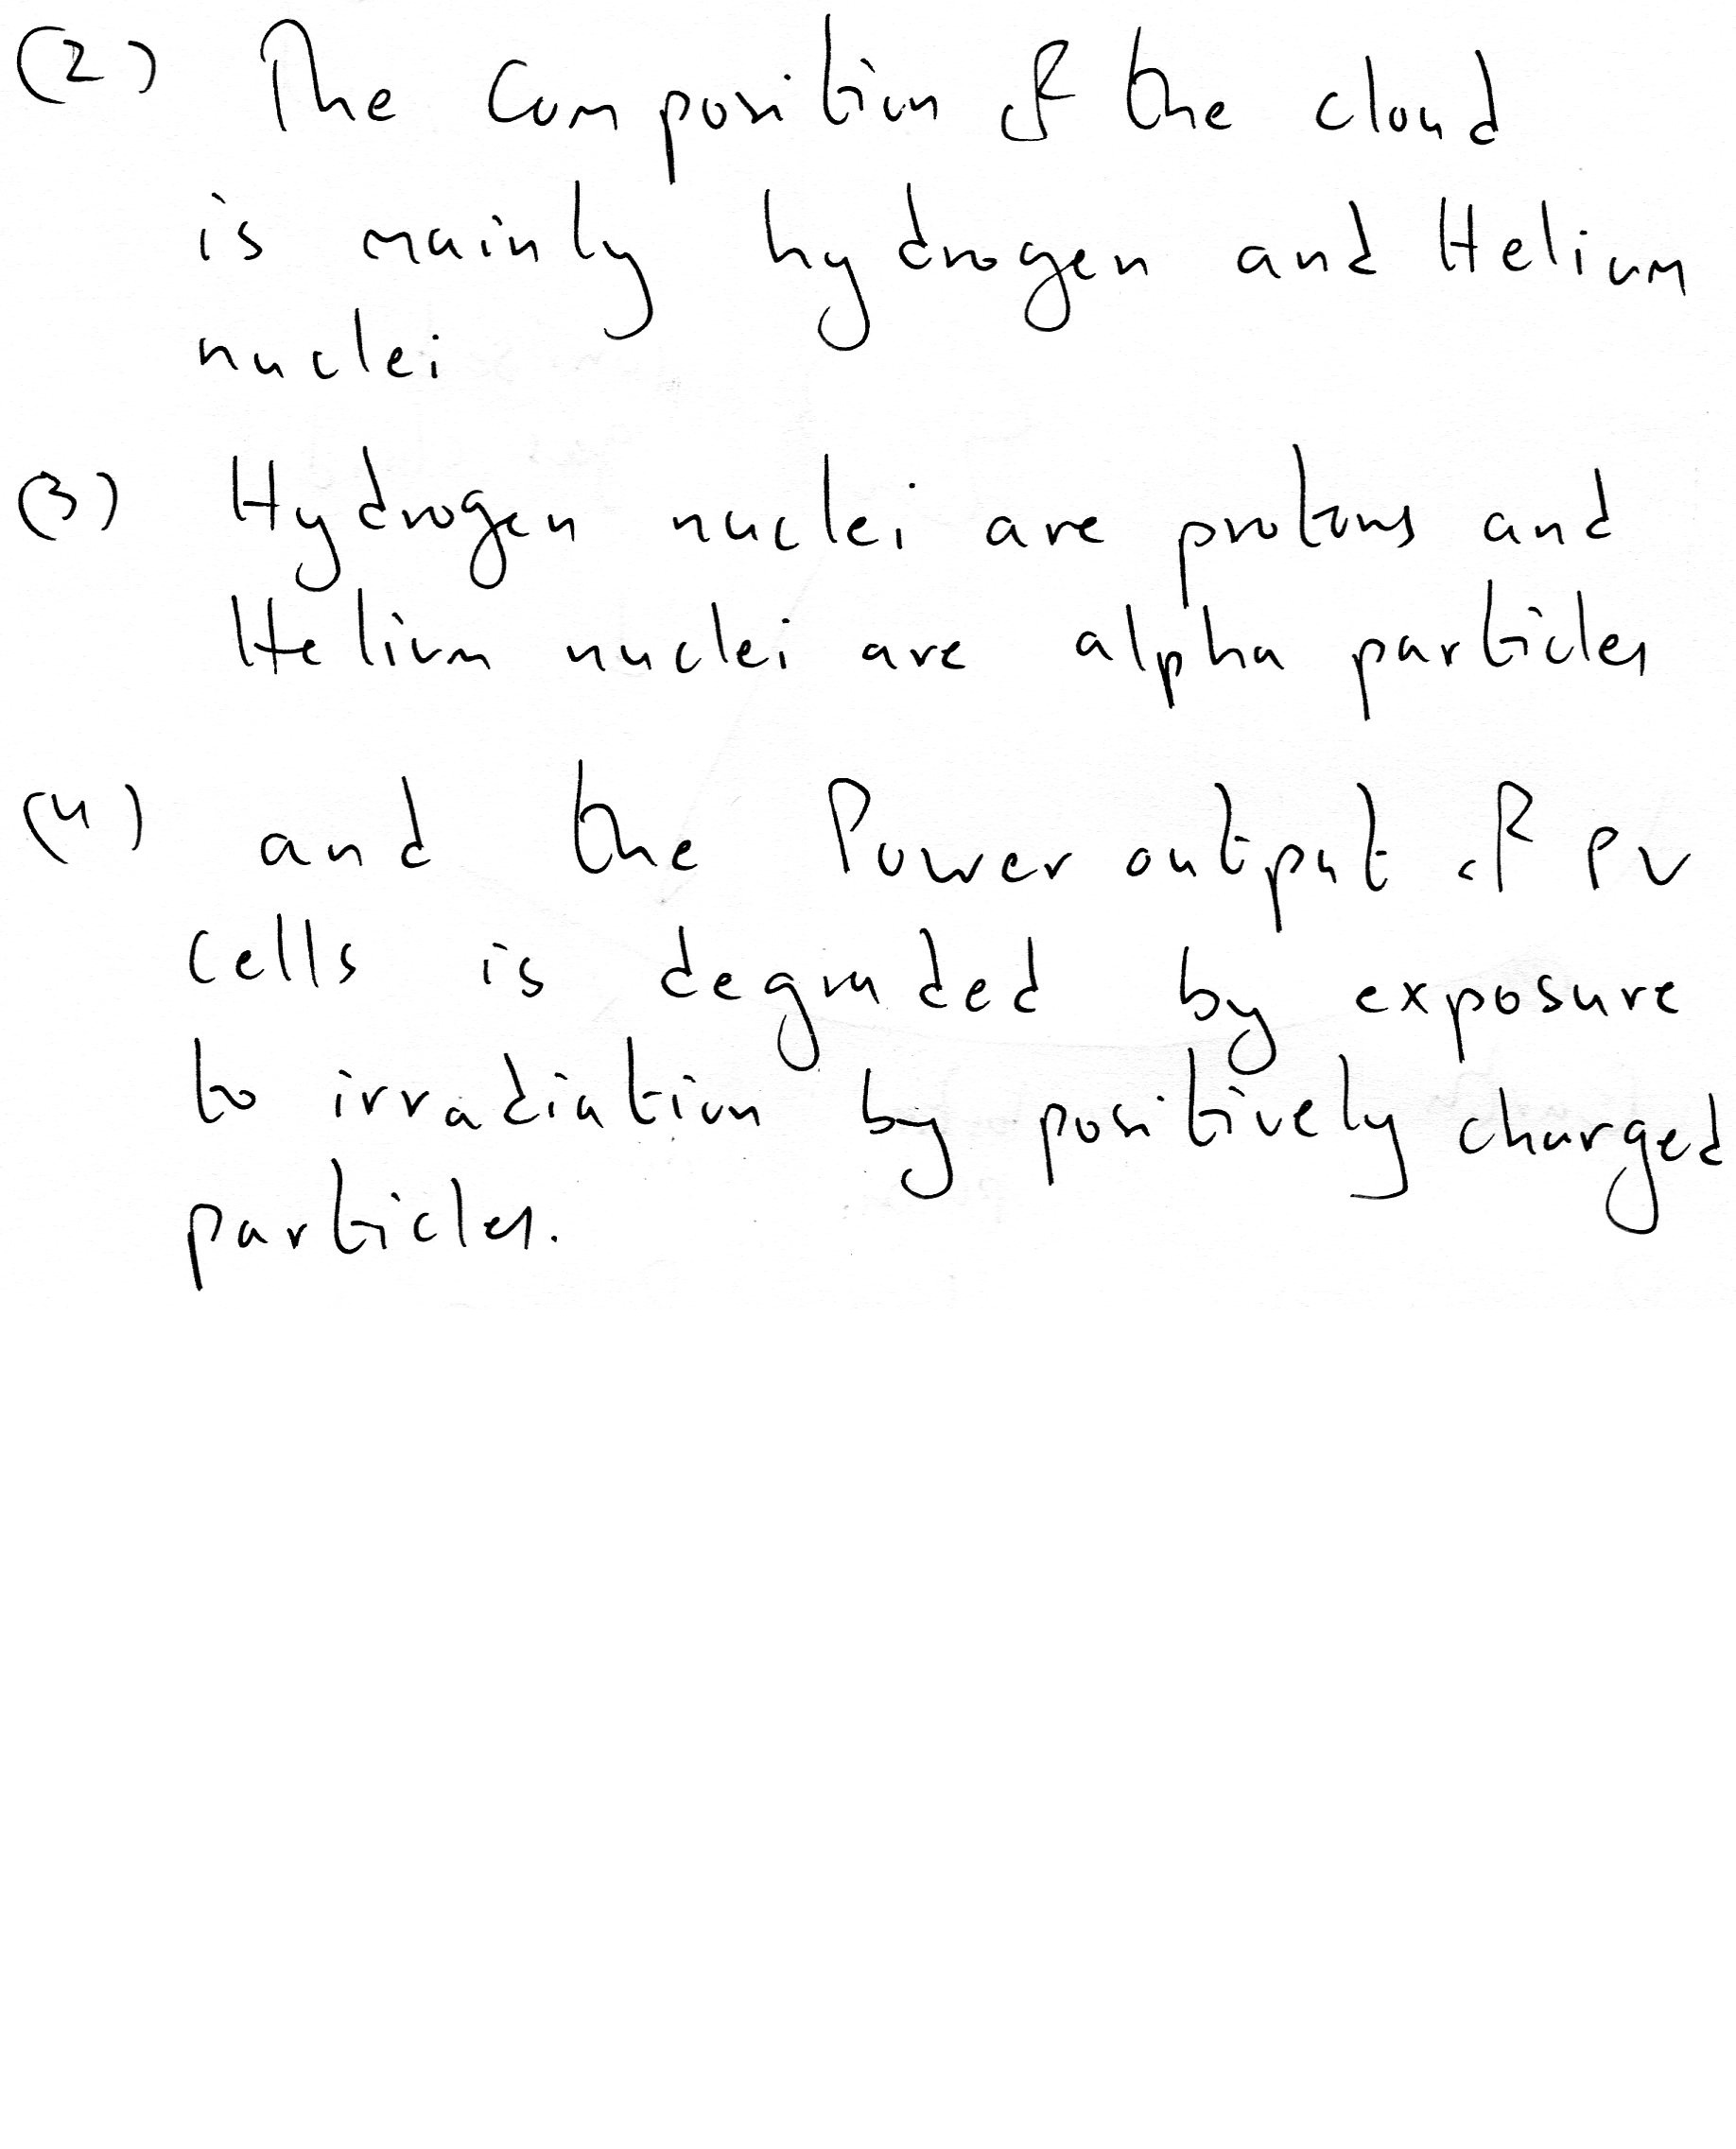 (2) The Composition of the cloud
is mainly hydrogen and Helium
nuclei
(3) Hydrogen nuclei are protons and
Helium nuclei are alpha particles
(4) and the Power output of PV
cells is degraded by exposure
to irradiation by positively charged
particles.